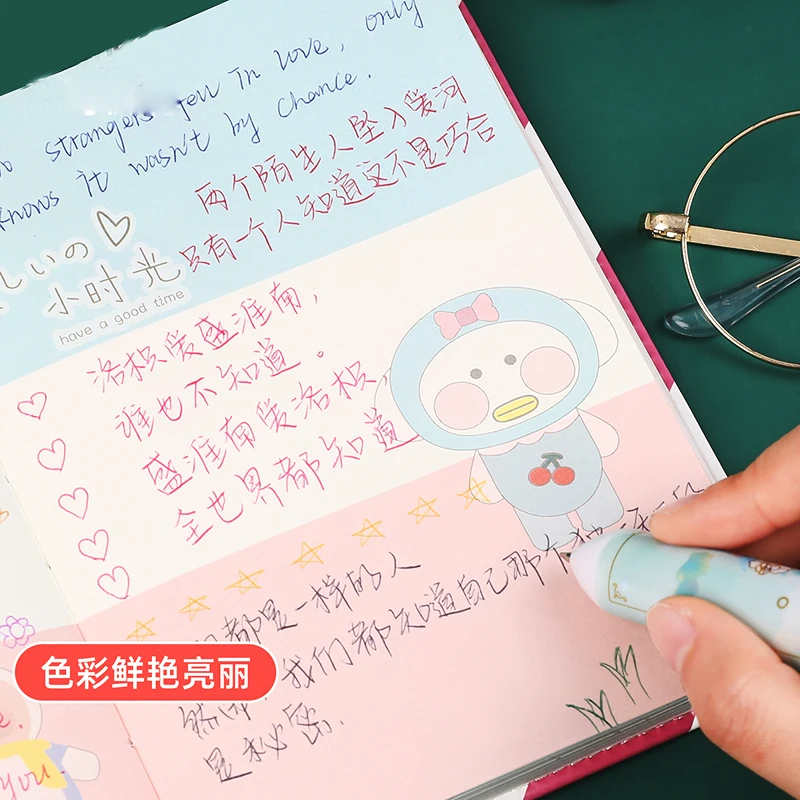 strangers fell in love, only
knows it wasn't by chance.
两个陌生人坠入爱河
只有一个人知道这不是巧合
しいの
小时光
have a good time
洛枳爱盛淮南,
谁也不知道。
盛淮南爱洛枳,
全世界都知道
都是一样的人
我们都知道自己那个独一无二
是秘密.
色彩鲜艳亮丽
you.